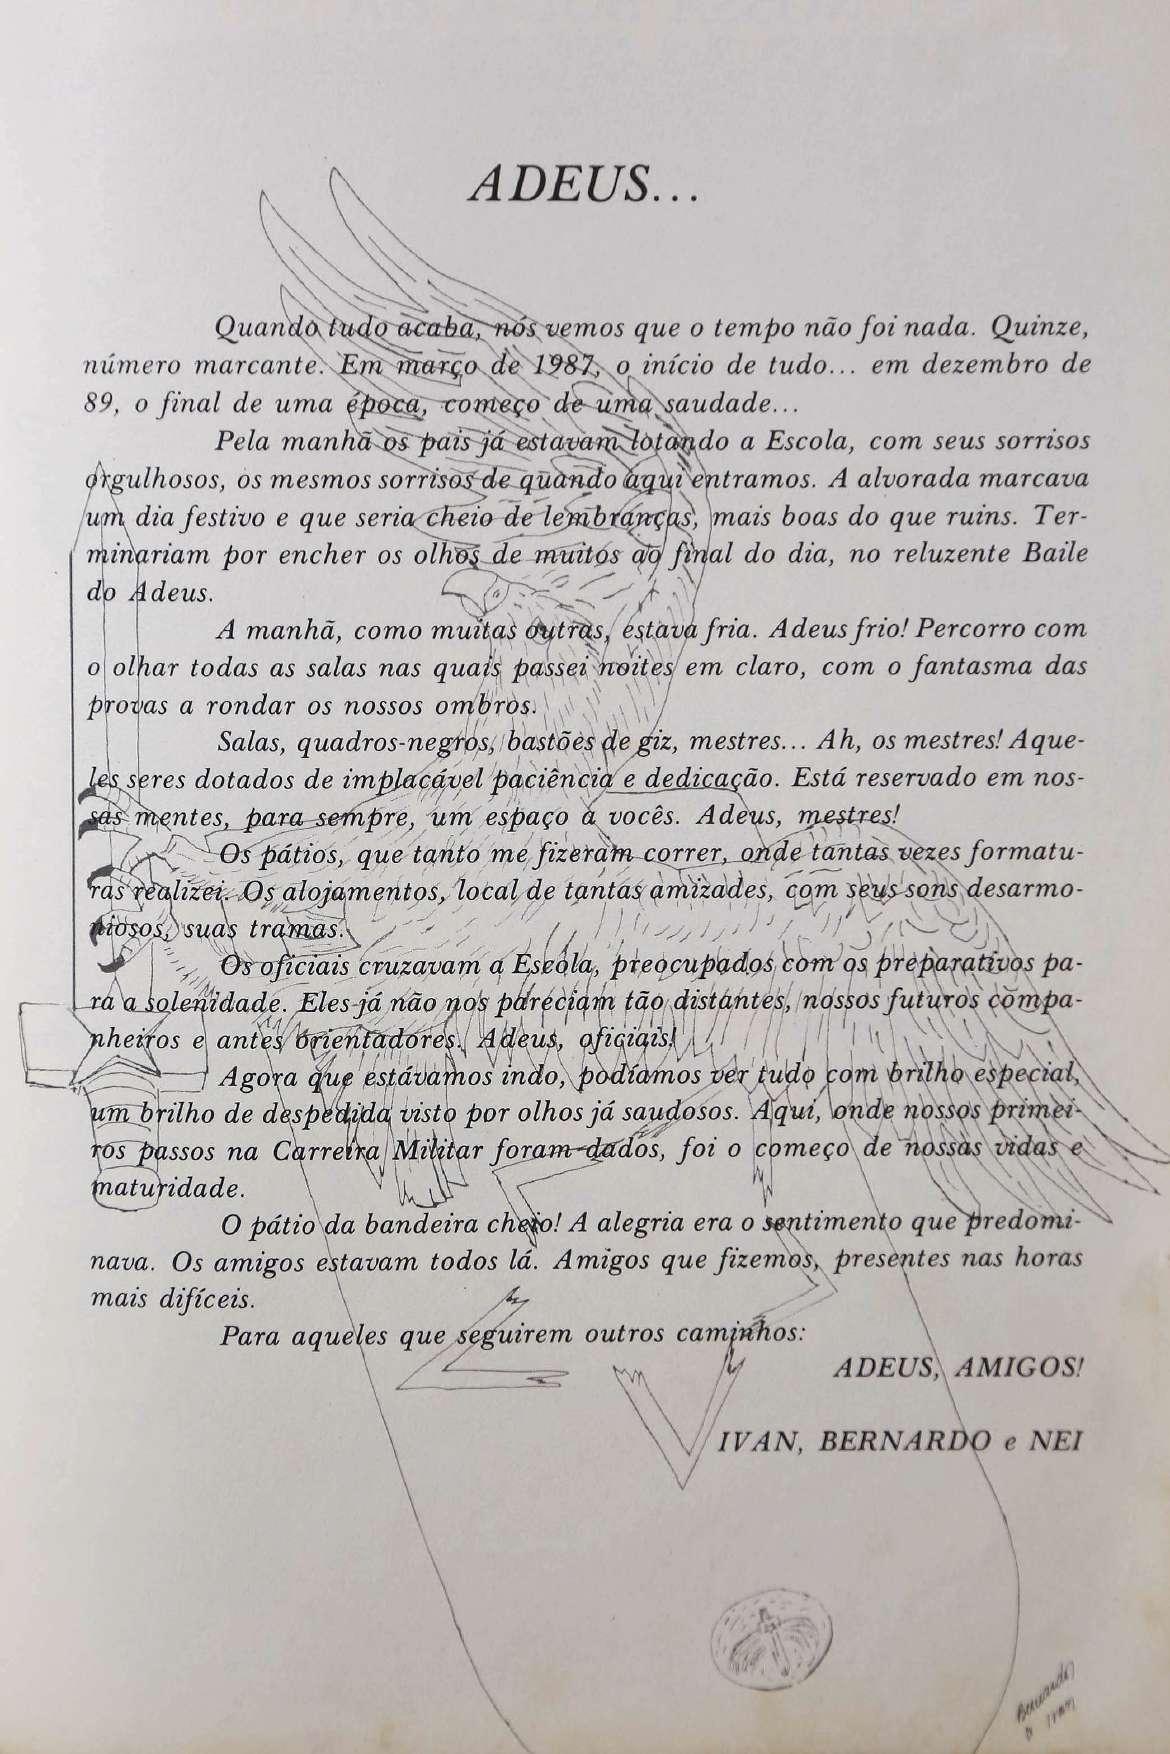 ADEUS...
Quando tudo acaba, nós vemos que o tempo não foi nada. Quinze,
número marcante. Em março de 1987, o início de tudo... em dezembro de
89, o final de uma época, começo de uma saudade...
Pela manhã os pais já estavam lotando a Escola, com seus sorrisos
orgulhosos, os mesmos sorrisos de quando aqui entramos. A alvorada marcava
um dia festivo e que seria cheio de lembranças, mais boas do que ruins. Ter-
minariam por encher os olhos de muitos ao final do dia, no reluzente Baile
do Adeus.
A manhã, como muitas outras, estava fria. Adeus frio! Percorro com
o olhar todas as salas nas quais passei noites em claro, com o fantasma das
provas a rondar os nossos ombros.
Salas, quadros-negros, bastões de giz, mestres... Ah, os mestres! Aque-
les seres dotados de implacável paciência e dedicação. Está reservado em nos-
sas mentes, para sempre, um espaço a vocês. Adeus, mestres!
Os pátios, que tanto me fizeram correr, onde tantas vezes formatu-
ras realizei. Os alojamentos, local de tantas amizades, com seus sons desarmo-
niosos, suas tramas.
Os oficiais cruzavam a Escola, preocupados com os preparativos pa-
ra a solenidade. Eles já não nos pareciam tão distantes, nossos futuros compa-
nheiros e antes orientadores. Adeus, oficiais!
Agora que estávamos indo, podíamos ver tudo com brilho especial,
um brilho de despedida visto por olhos já saudosos. Aqui, onde nossos primei-
ros passos na Carreira Militar foram dados, foi o começo de nossas vidas e
maturidade.
O pátio da bandeira cheio! A alegria era o sentimento que predomi-
nava. Os amigos estavam todos lá. Amigos que fizemos, presentes nas horas
mais difíceis.
Para aqueles que seguirem outros caminhos:
ADEUS, AMIGOS!
IVAN, BERNARDO e NEI
Bernardo